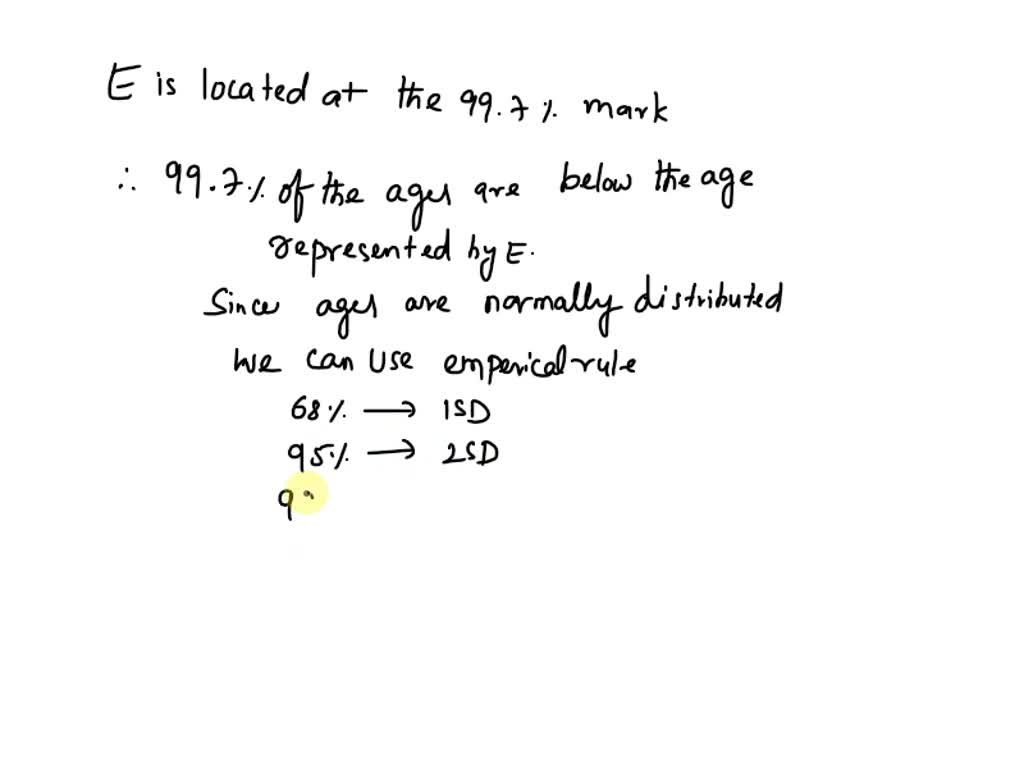 E is located at the 99.7% mark
∴ 99.7% of the ages are below the age
represented by E.
Since ages are normally distributed
we can use emperical rule
68% → 1SD
95% → 2SD
9